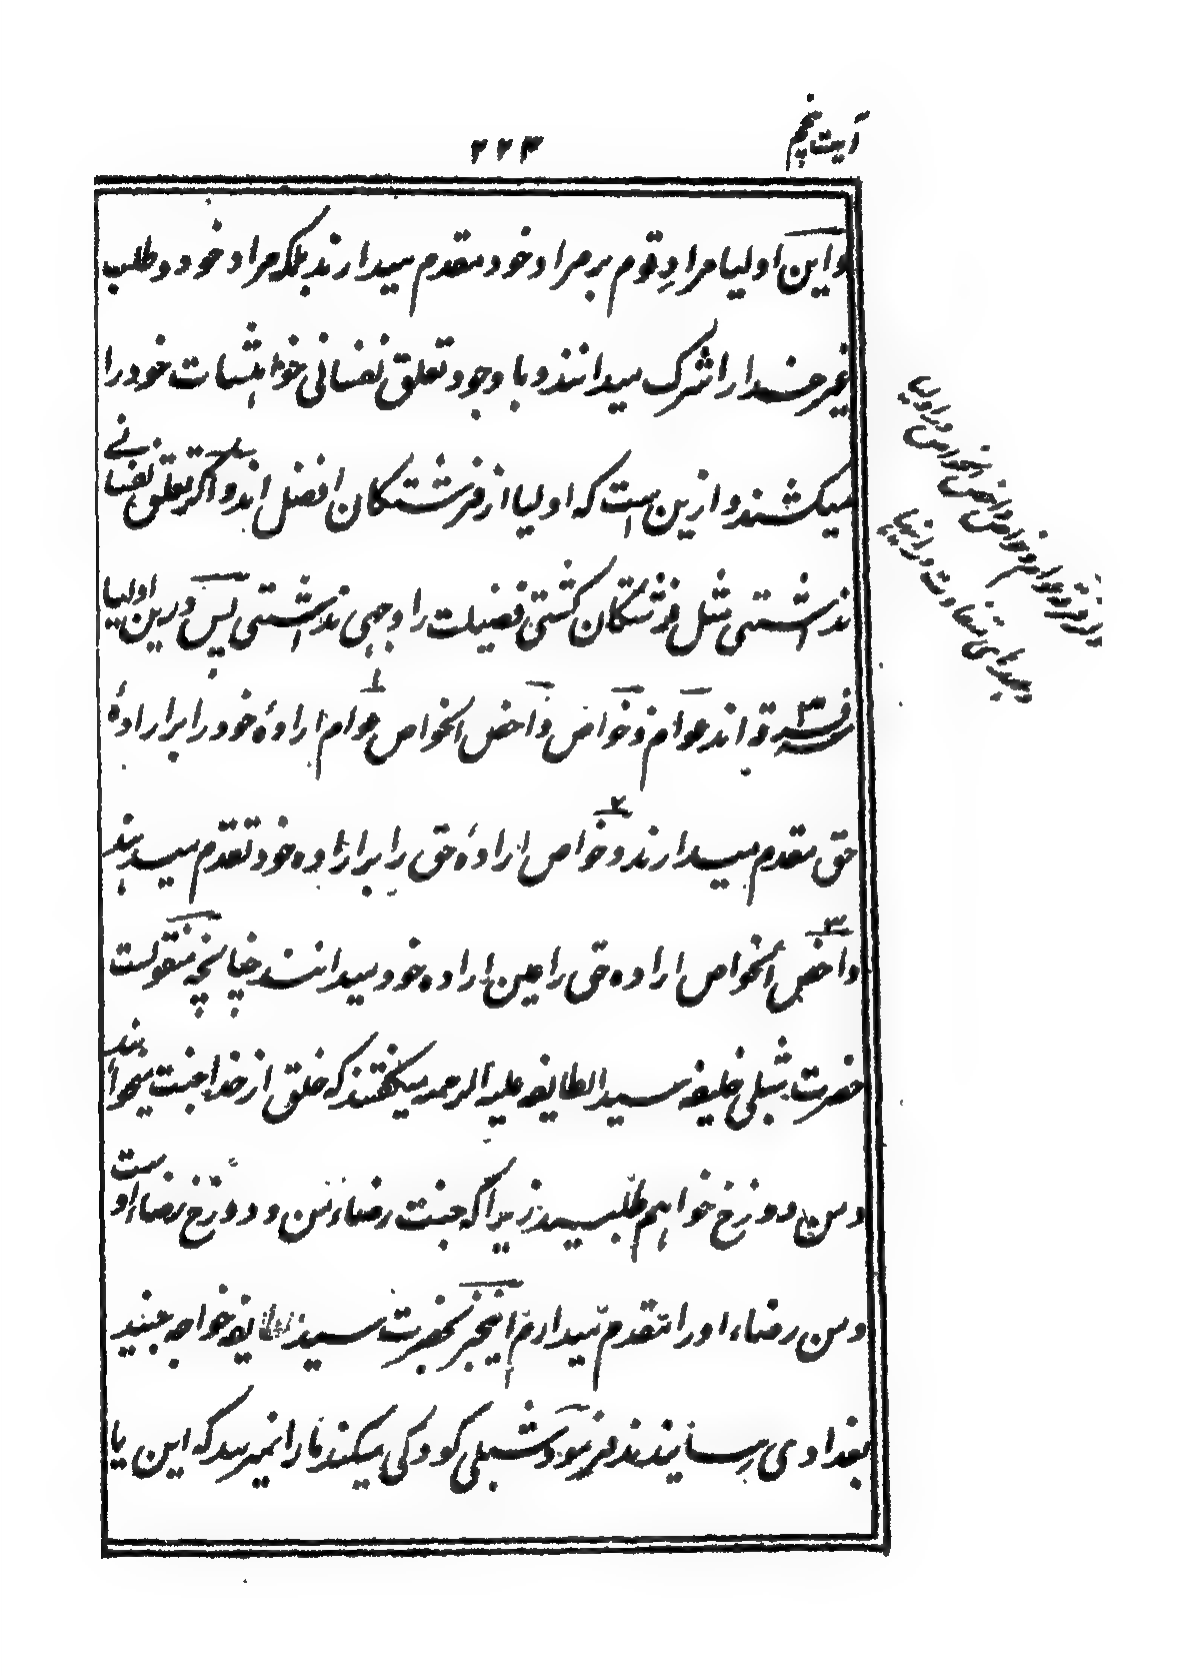 آیت پنجم
۲۲۳
و این اولیا مراد قوم بر مراد خود مقدم میدارند بلکه مراد خود و طلب
غیر خدا را شرک میدانند و با وجود تعلق نفسانی خواهشات خود را
میکشند و ازین است که اولیا از فرشتگان افضل اند و اگر تعلق نفسانے
نداشتی مثل فرشتگان گشتی فضیلت را وجهی نداشتی پس درین اولیا
سه فرقه اند عوام و خواص و اخص الخواص ۱ عوام ارادۂ خود را بر ارادۂ
حق مقدم میدارند ۲ و خواص ارادۂ حق را بر اراده خود تقدم میدهند
۳ و اخص الخواص اراده حق را عین اراده خود میدانند چنانچه منقولست
حضرت شبلی خلیفه سید الطایفه علیه الرحمه میگفتند که خلق از خدا جنت میخواهند
و من دوزخ خواهم طلبید زیرا که جنت رضاء من و دوزخ رضاء اوست
و من رضاء او را تقدم میدارم اینخبر بحضرت سید الطایفه خواجه جنید
بغدادی رسانیدند فرمود شبلی کودکی میکند ما را نمیرسد که این یا
در اولیا
و خواص و اخص الخواص